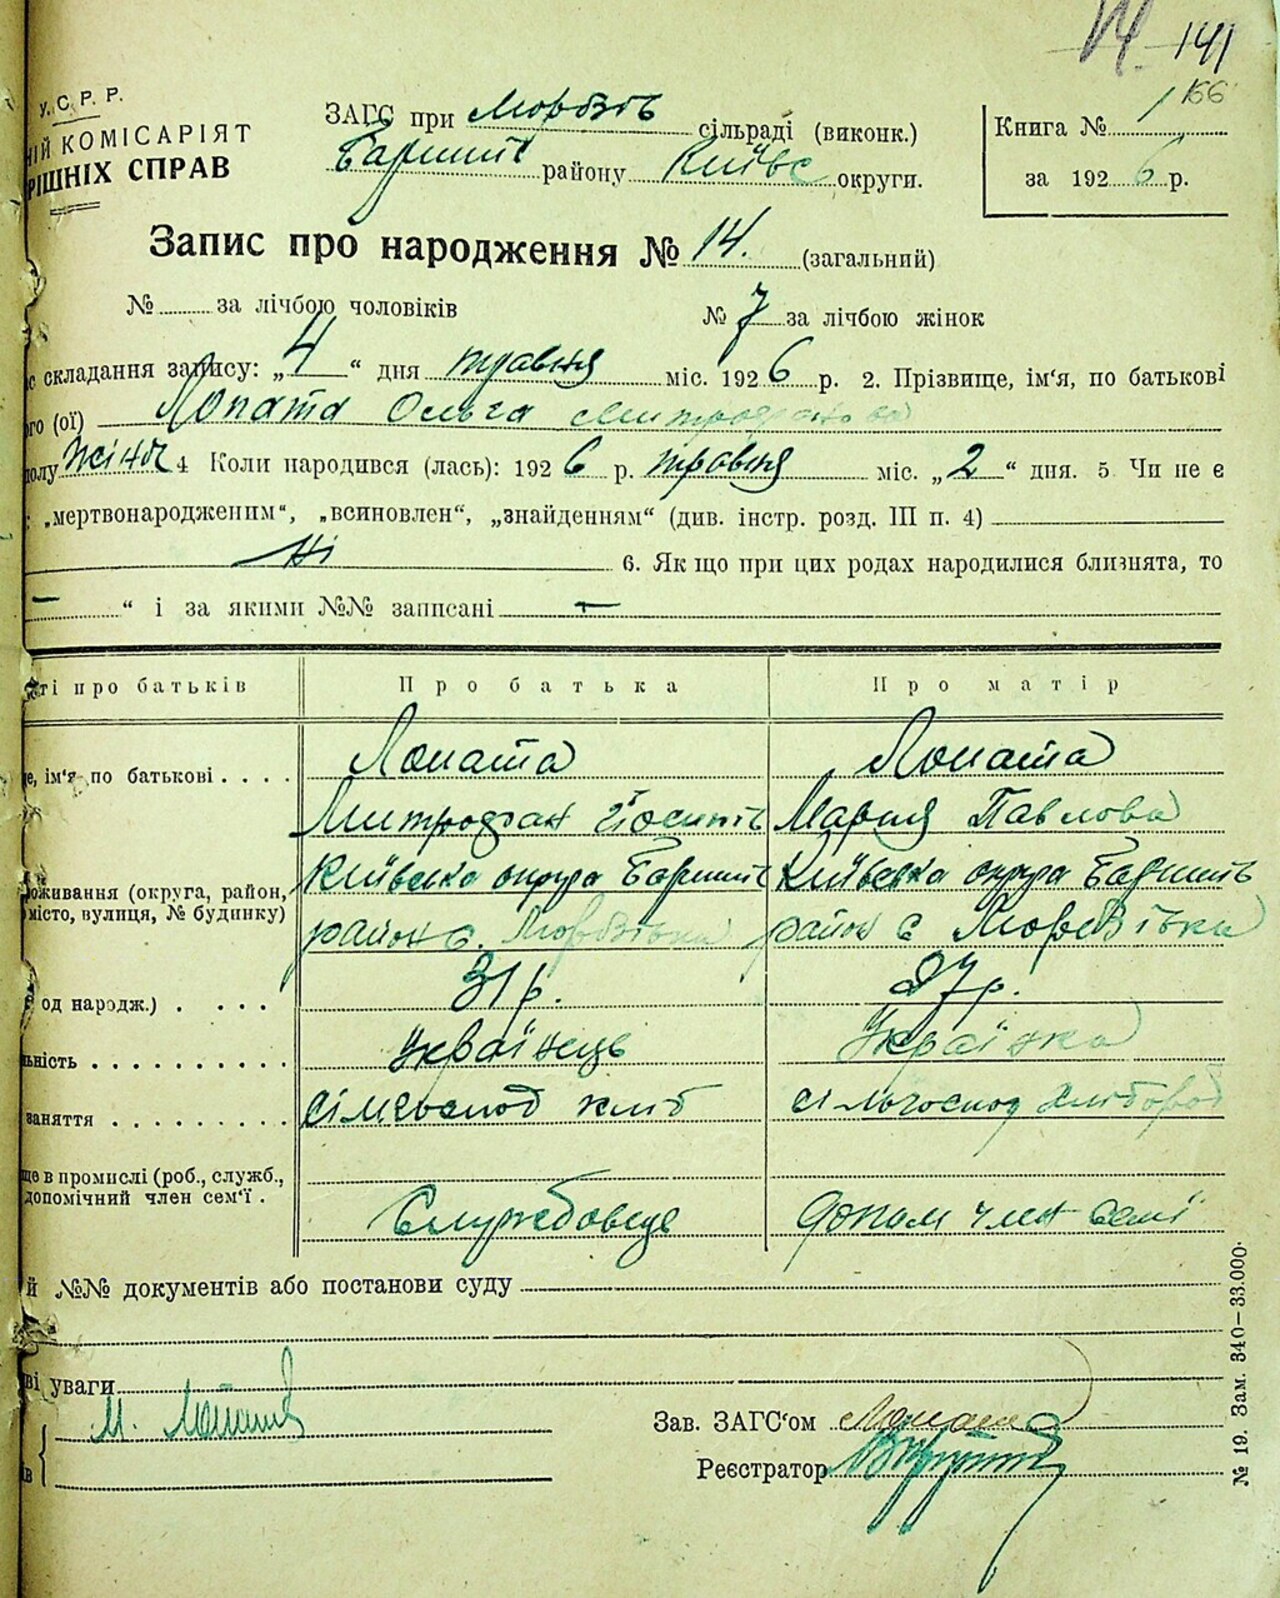 141
166
У. С. Р. Р.
ІЙ КОМІСАРІЯТ
РІШНІХ СПРАВ
ЗАГС при Морозів сільраді (виконк.)
Баришів району Київс округи.
Книга № 1
за 192 6 р.
Запис про народження № 14. (загальний)
№ за лічбою чоловіків
№ 7 за лічбою жінок
с складання запису: „ 4 “ дня травня міс. 192 6 р. 2. Прізвище, ім'я, по батькові
го (ої) Лопата Ольга Митрофанова
полу жіноч 4 Коли народився (лась): 192 6 р. травня міс. „ 2 “ дня. 5. Чи не є
: „мертвонародженим“, „всиновлен“, „знайденням“ (див. інстр. розд. III п. 4)
Ні 6. Як що при цих родах народилися близнята, то
— “ і за якими №№ записані —
ті про батьків Про батька Про матір
е, ім'я по батькові . . . . Лопата Лопата
Митрофан Йосипів Мария Павлова
оживання (округа, район, Київська округа Баришів Київська округа Баришів
місто, вулиця, № будинку) район с. Морозівка район с Морозівка
од народж.) . . . . 31 р. 27 р.
ьність . . . . . . . . . . Українець Українка
заняття . . . . . . . . . сільгоспод хліб сільгоспод хлібороб
ще в промислі (роб., служб.,
допомічний член сем'ї . Службовець допом член семї
й №№ документів або постанови суду
ві уваги
М. Лопата
Зав. ЗАГС'ом Лопата
Реєстратор
№ 19. Зам. 340—33.000.